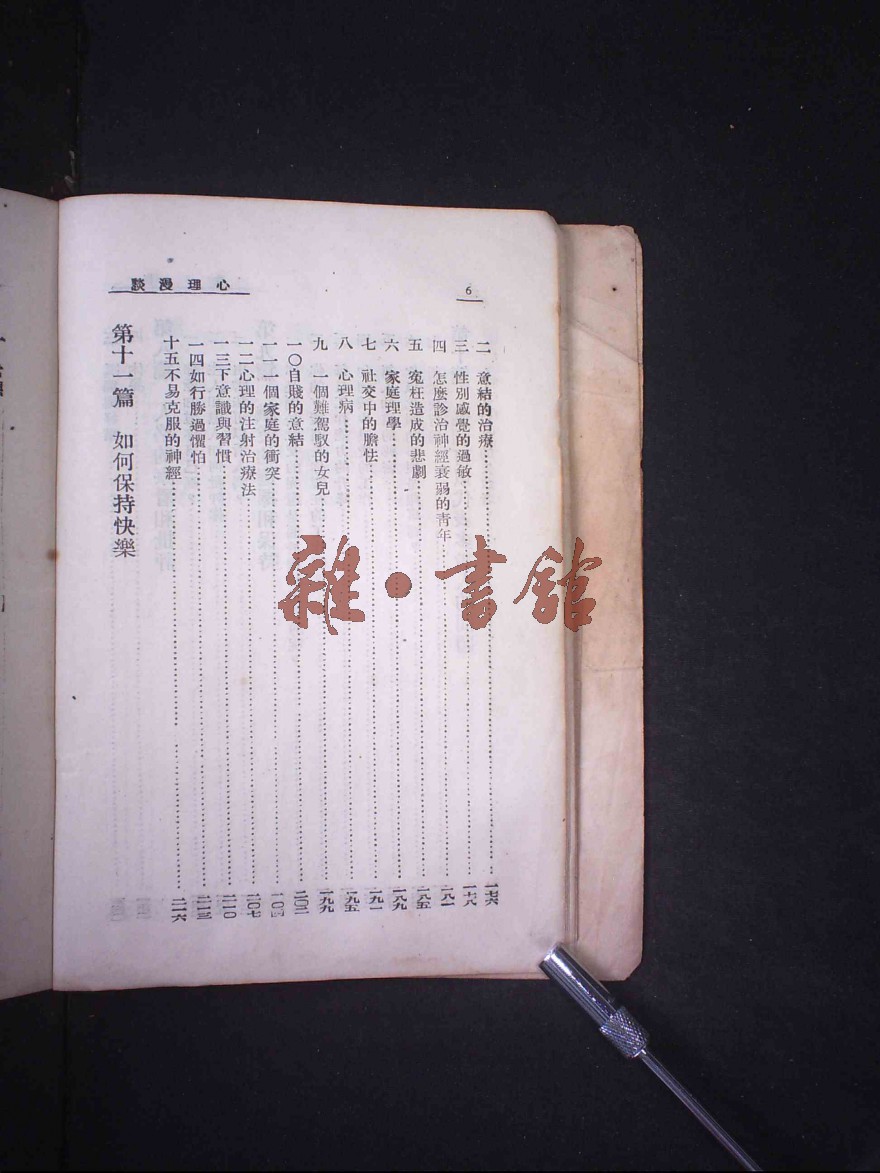 心理漫談
6
二 意結的治療……一七六
三 性別感覺的過敏……一七八
四 怎麼診治神經衰弱的青年……一八一
五 寃枉造成的悲劇……一八五
六 家庭理學……一八九
七 社交中的膽怯……一九一
八 心理病……一九五
九 一個難駕馭的女兒……一九九
一〇自賤的意結……二〇二
一一一個家庭的衝突……二〇四
一二心理的注射治療法……二〇七
一三下意識與習慣……二一〇
一四如行勝過懼怕……二一三
十五不易克服的神經……二一六
第十一篇 如何保持快樂
雜·書館